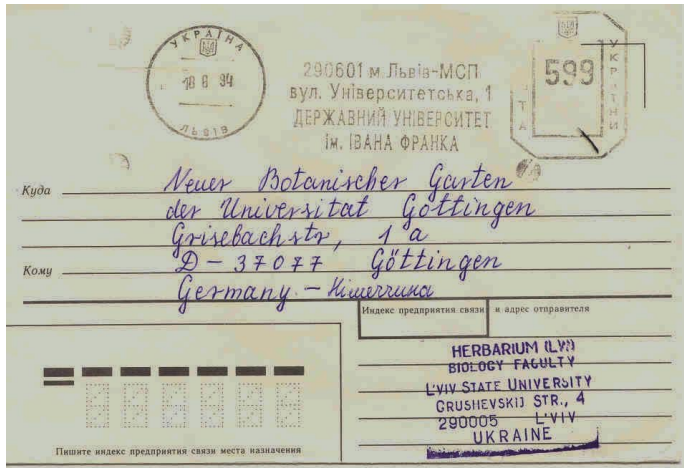 УКРАЇНА
18 8 94
ЛЬВІВ
290601 м Львів-МСП
вул. Університетська, 1
ДЕРЖАВНИЙ УНІВЕРСИТЕТ
ім. ІВАНА ФРАНКА
599
Куда Neuer Botanischer Garten
der Universitat Göttingen
Grisebachstr, 1 a
Кому D-37077 Göttingen
Germany - Німеччина
Индекс предприятия связи и адрес отправителя
HERBARIUM (LW)
BIOLOGY FACULTY
L'VIV STATE UNIVERSITY
GRUSHEVSKIJ STR., 4
290005 L'VIV
UKRAINE
Пишите индекс предприятия связи места назначения